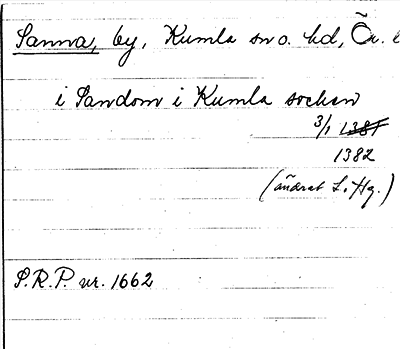 Sanna, by, Kumla sn o. hd, Ör. l
i Sandom i Kumla socken
3/1 1381
1382
(ändrat L. Hg.)
S.R.P. nr. 1662